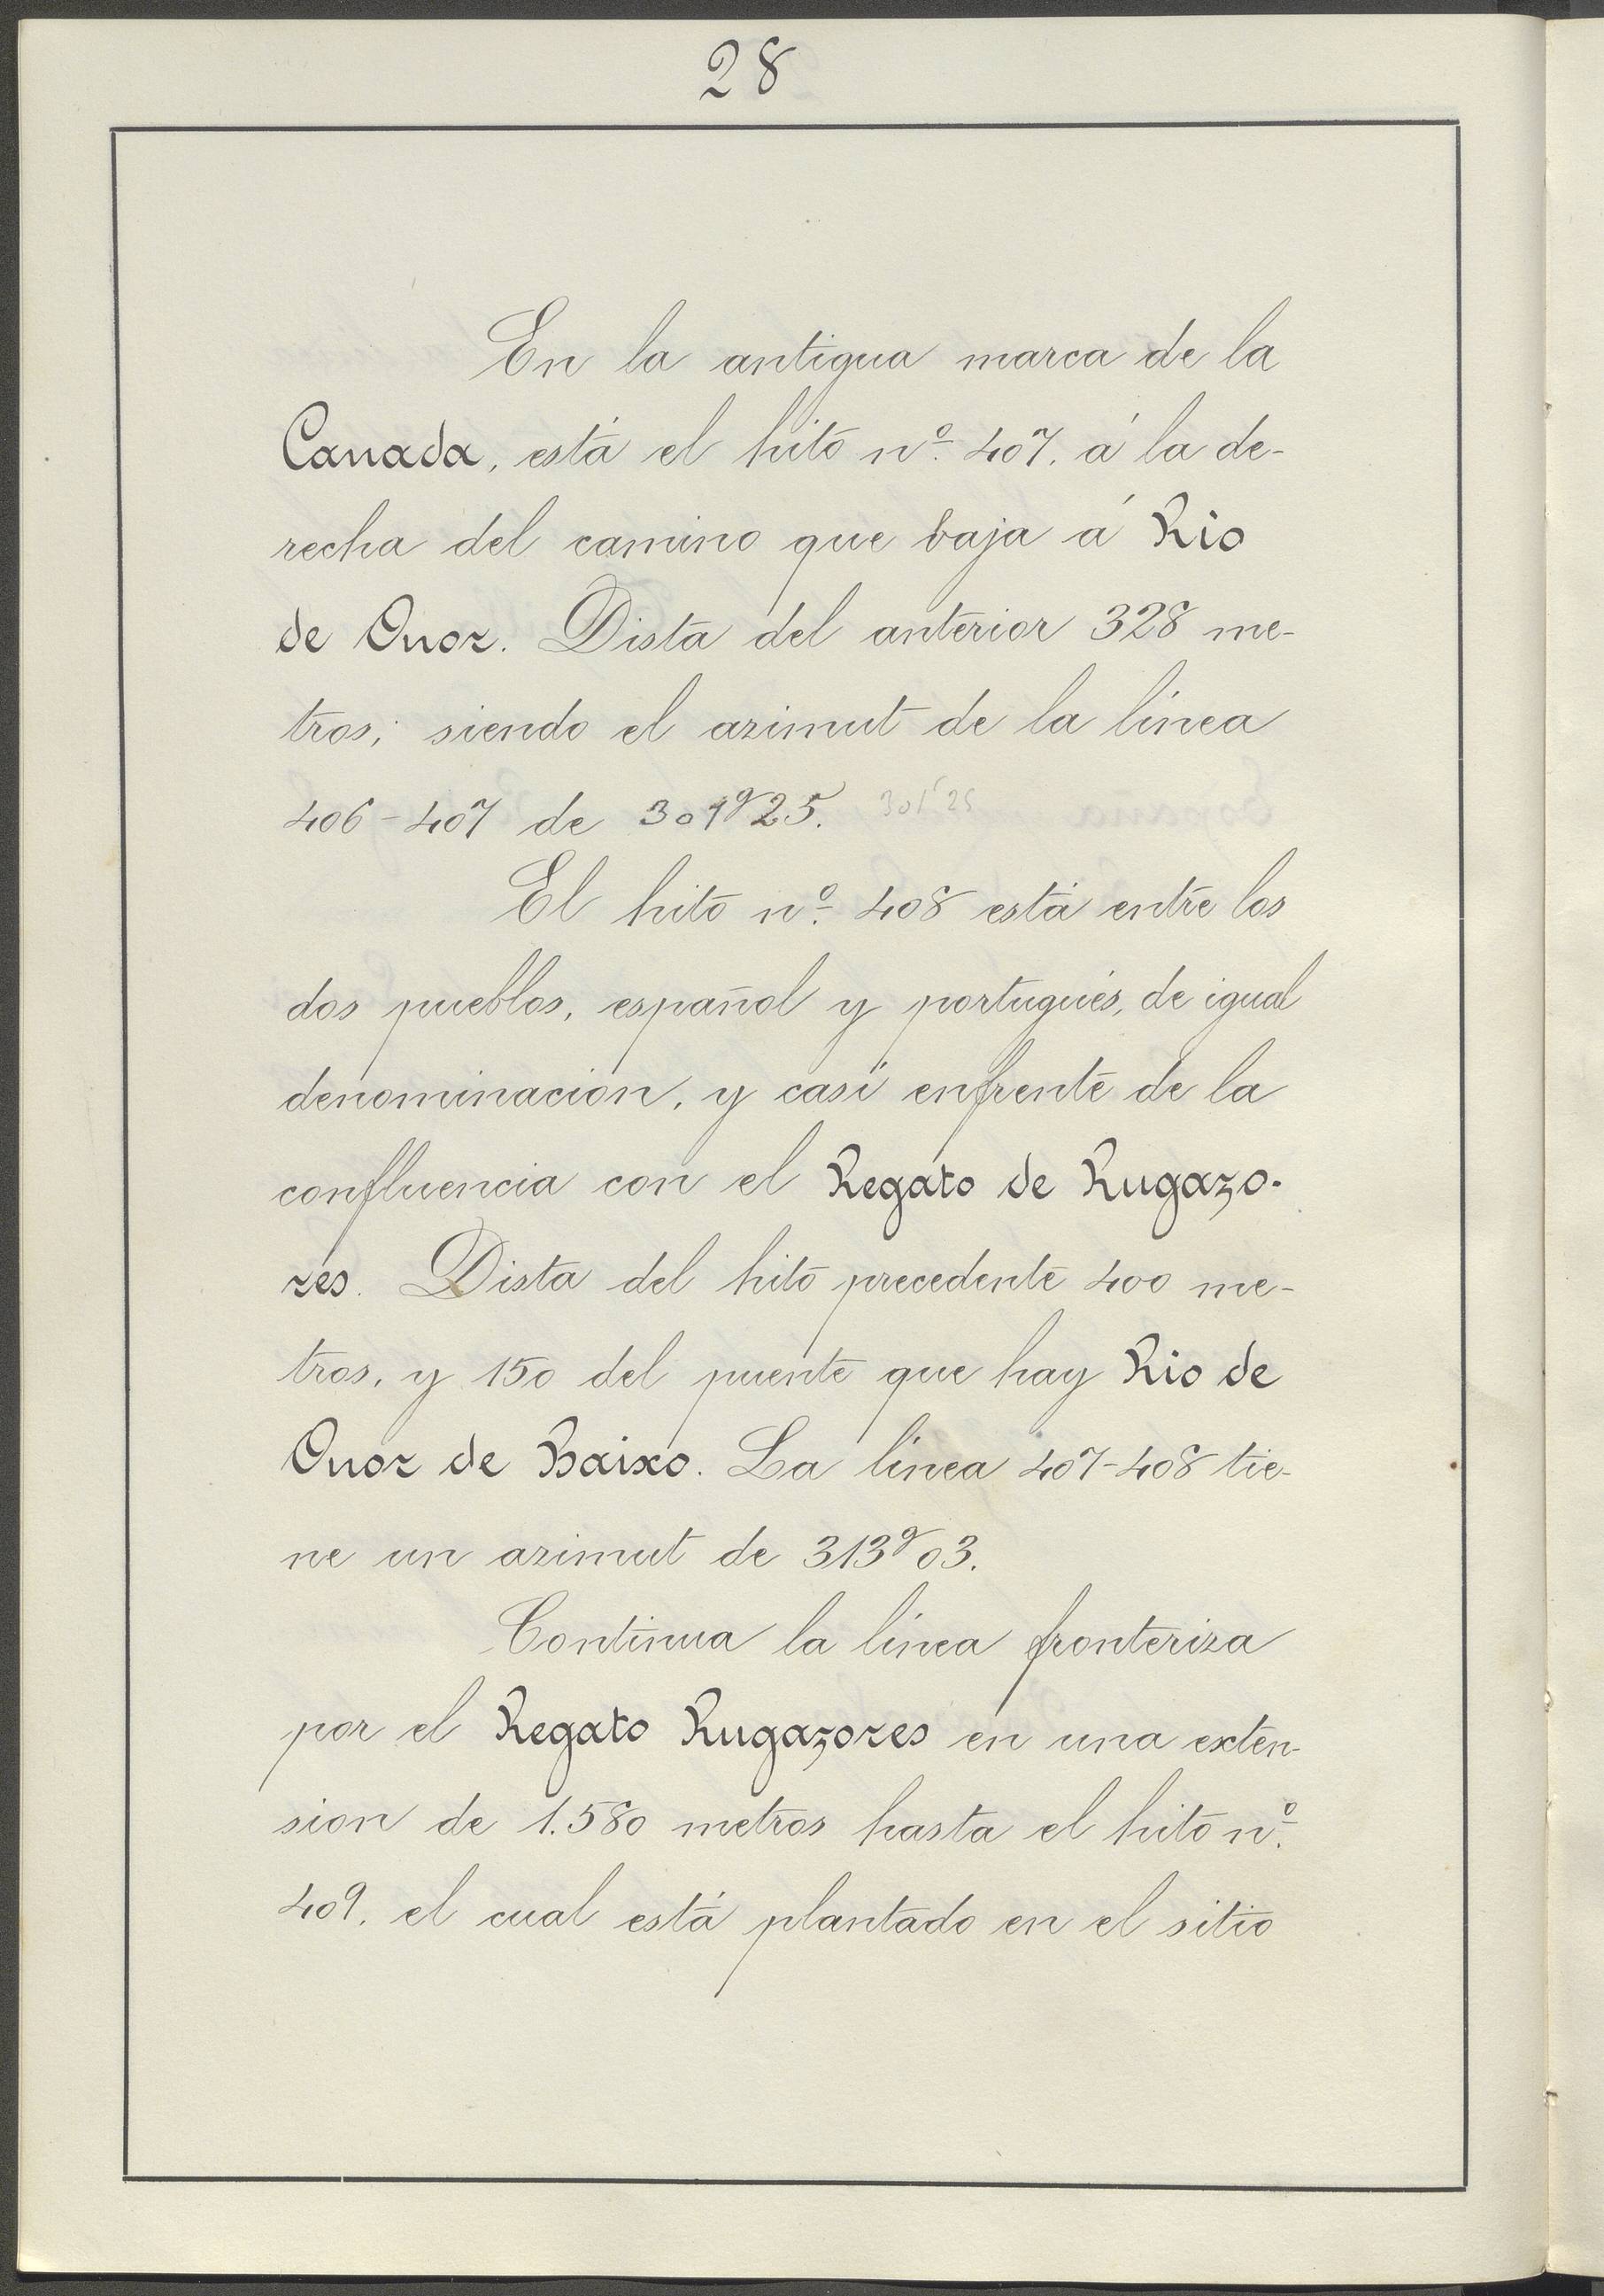 28
En la antigua marca de la
Canada, está el hito nº 407, á la de-
recha del camino que baja á Rio
de Onor. Dista del anterior 328 me-
tros; siendo el azimut de la línea
406-407 de 301g25. 301 25
El hito nº 408 está entre los
dos pueblos, español y portugués, de igual
denominación, y casi enfrente de la
confluencia con el Regato de Rugazo-
res. Dista del hito precedente 400 me-
tros, y 150 del puente que hay Rio de
Onor de Baixo. La línea 407-408 tie-
ne un azimut de 313g03.
Continua la línea fronteriza
por el Regato Rugazores en una exten-
sion de 1.580 metros hasta el hito nº
409, el cual está plantado en el sitio